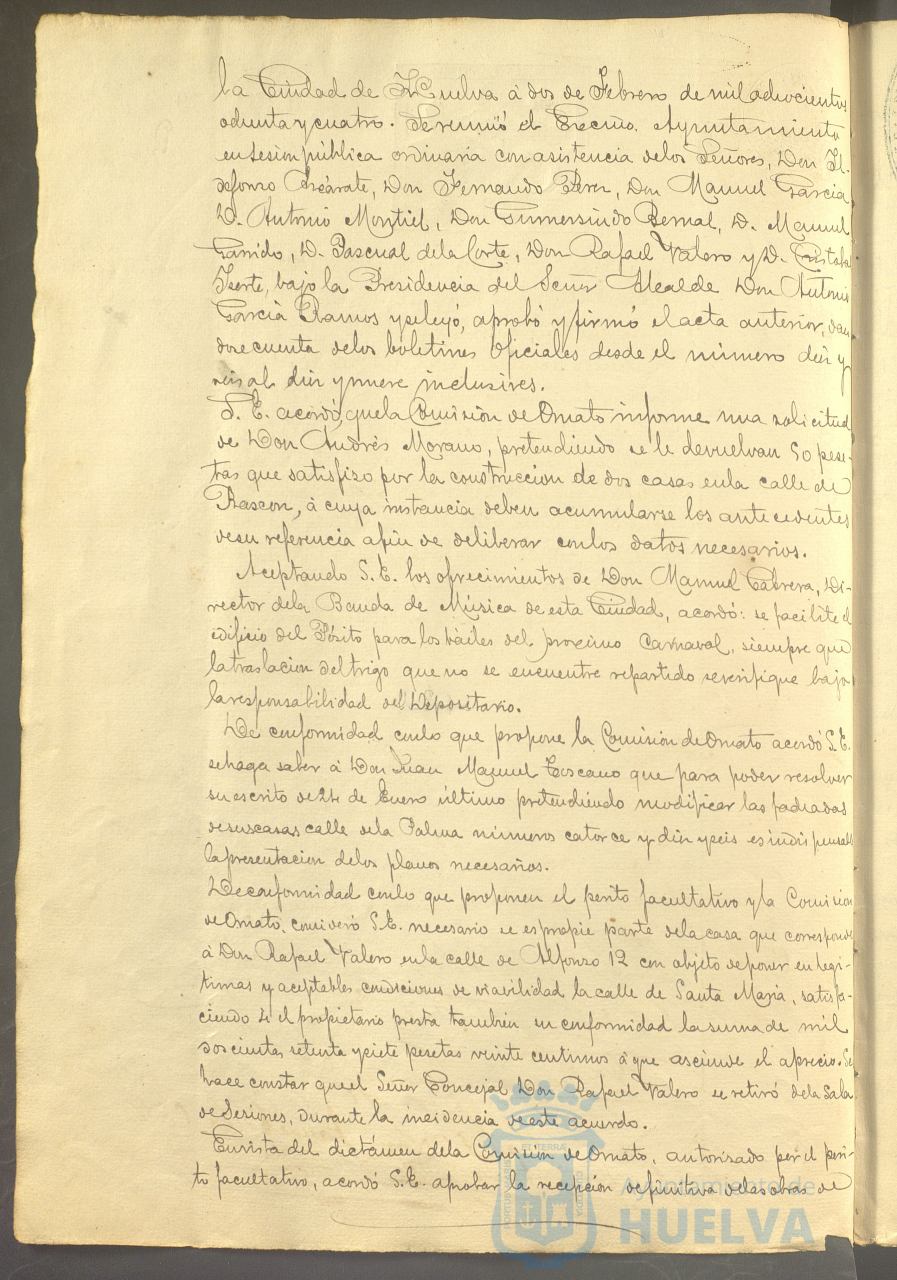 la Ciudad de Huelva á dos de Febrero de mil ochocientos
ochenta y cuatro. Se reunió el Excmo. Ayuntamiento
en sesion pública ordinaria con asistencia de los Señores, Don Il-
defonso Azcárate, Don Fernando Perez, Don Manuel Garcia
D. Antonio Montiel, Don Gumersindo Bernal, D. Manuel
Garrido, D. Pascual de la Corte, Don Rafael Valero y D. Cristobal
bajo la Presidencia del Señor Alcalde Don Antonio
Garcia Ramos y se leyó, aprobó y firmó el acta anterior, dan
dose cuenta de los boletines Oficiales desde el número diez y
seis al diez y nueve inclusives.
S. E. acordó, que la Comision de Ornato informe una solicitud
de Don Andrés Morano, pretendiendo se le devuelvan 50 pese-
tas que satisfizo por la construccion de dos casas en la calle de
Rascon, á cuya instancia deben acumularse los antecedentes
de su referencia á fin de deliberar con los datos necesarios.
Aceptando S. E. los ofrecimientos de Don Manuel Cabrera, Di-
rector de la Banda de Música de esta Ciudad, acordó: se facilite el
edificio del Pósito para los báiles del proximo Carnaval, siempre que
la traslacion del trigo que no se encuentre repartido se verifique bajo
la responsabilidad del Depositario.
De conformidad con lo que propone la Comision de Ornato acordó S. E.
se haga saber á Don Juan Manuel Toscano que para poder resolver
su escrito de 24 de Enero último pretendiendo modificar las fachadas
de sus casas calle de la Palma números catorce y diez y seis es indispensable
la presentacion de los planos necesarios.
De conformidad con lo que proponen el perito facultativo y la Comision
de Ornato, consideró S. E. necesario se espropie parte de la casa que corresponde
á Don Rafael Valero en la calle de Alfonso 12 con objeto de poner en legí-
timas y aceptables condiciones de viabilidad la calle de Santa Maria, satisfa-
ciendo si el propietario presta tambien su conformidad la suma de mil
doscientas setenta y siete pesetas veinte centimos á que asciende el aprecio. Se
hace constar que el Señor Concejal Don Rafael Valero se retiró de la Sala
de Sesiones, durante la incidencia de este acuerdo.
En vista del dictámen de la Comision de Ornato, autorizado por el peri-
to facultativo, acordó S. E. aprobar la recepcion definitiva de las obras de
Ayuntamiento de
HUELVA